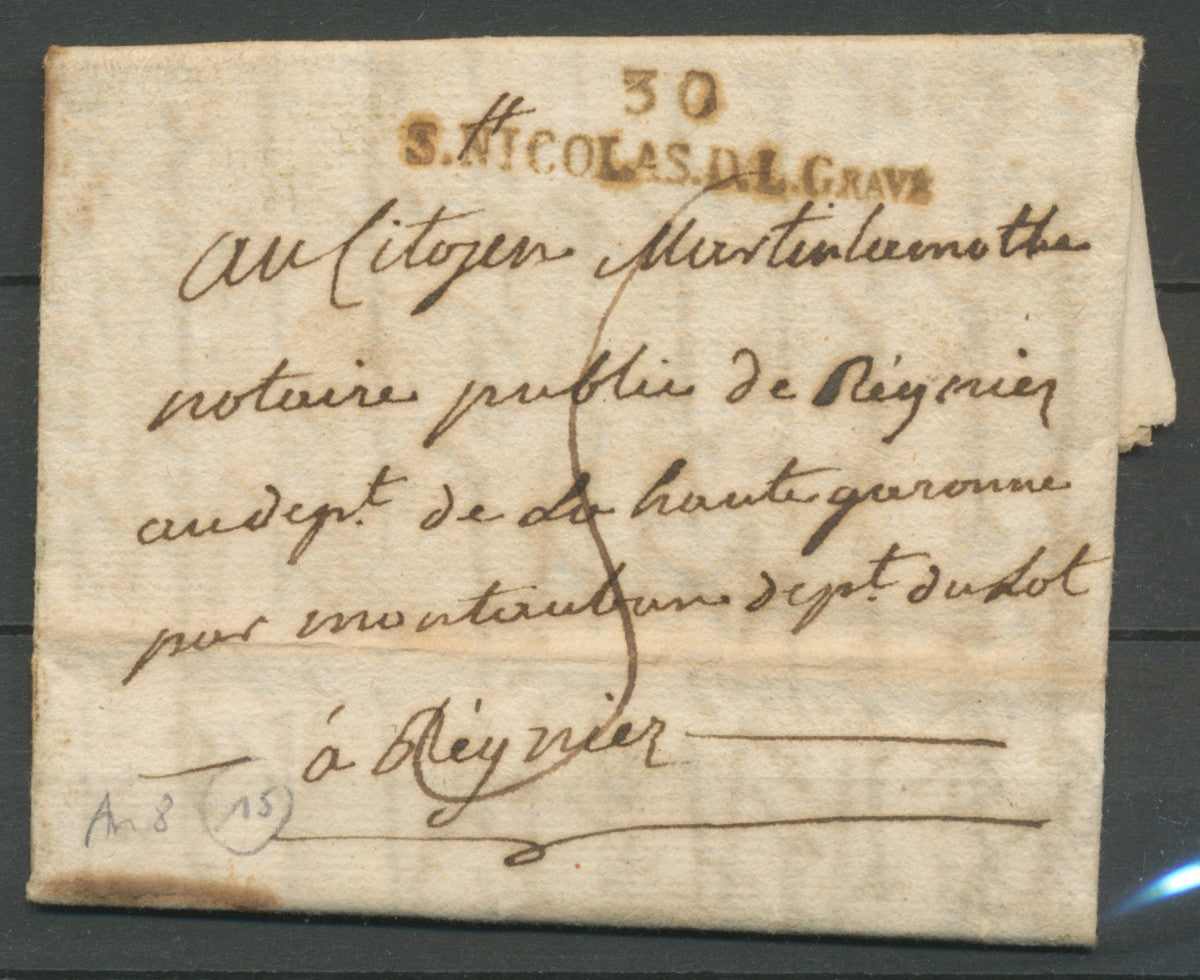 30
S.NICOLAS.D.L.GRAVE
au Citoyen Martinlamothe
notaire public de Réyniez
au dept. de La haute garonne
par montauban dept. du Lot
à Réyniez
An 8 15